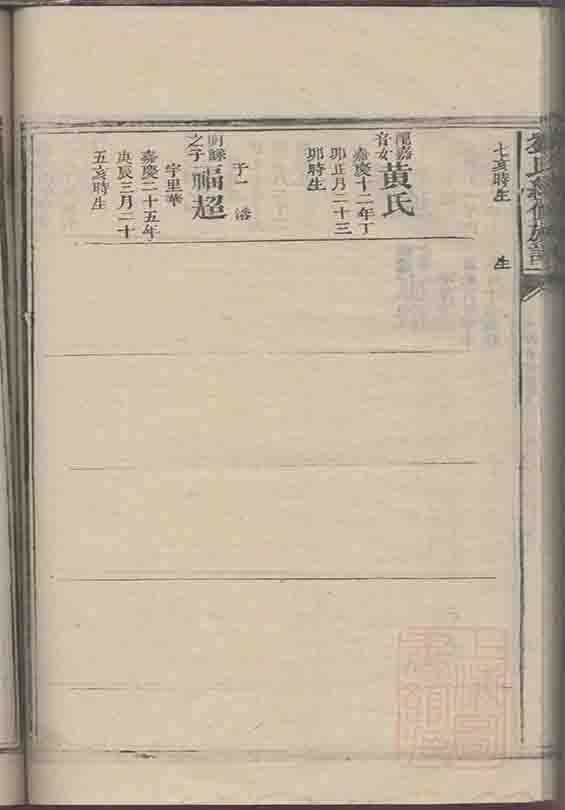 七亥時生
生
黃氏
音女
嘉慶十二年丁
卯正月二十三
卯時生
子一
福超
之子
字里華
嘉慶二十五年
庚辰三月二十
五亥時生